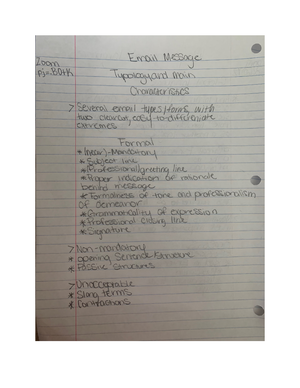 Zoom
Email Message
Typology and main
Characteristics
> Several email types/forms, with
two clearcut, easy-to-differentiate
extremes
Formal
* (near)-Mandatory
* Subject line
* (Professional)greeting line
* Proper indication of rationale
behind message
* Formalness of tone and professionalism
of demeanor
* Grammaticality of expression
* Professional ending line
* Signature
> Non-mandatory
* opening Sentence Structure
* Passive structures
> Unacceptable
* Slang terms
* Contractions